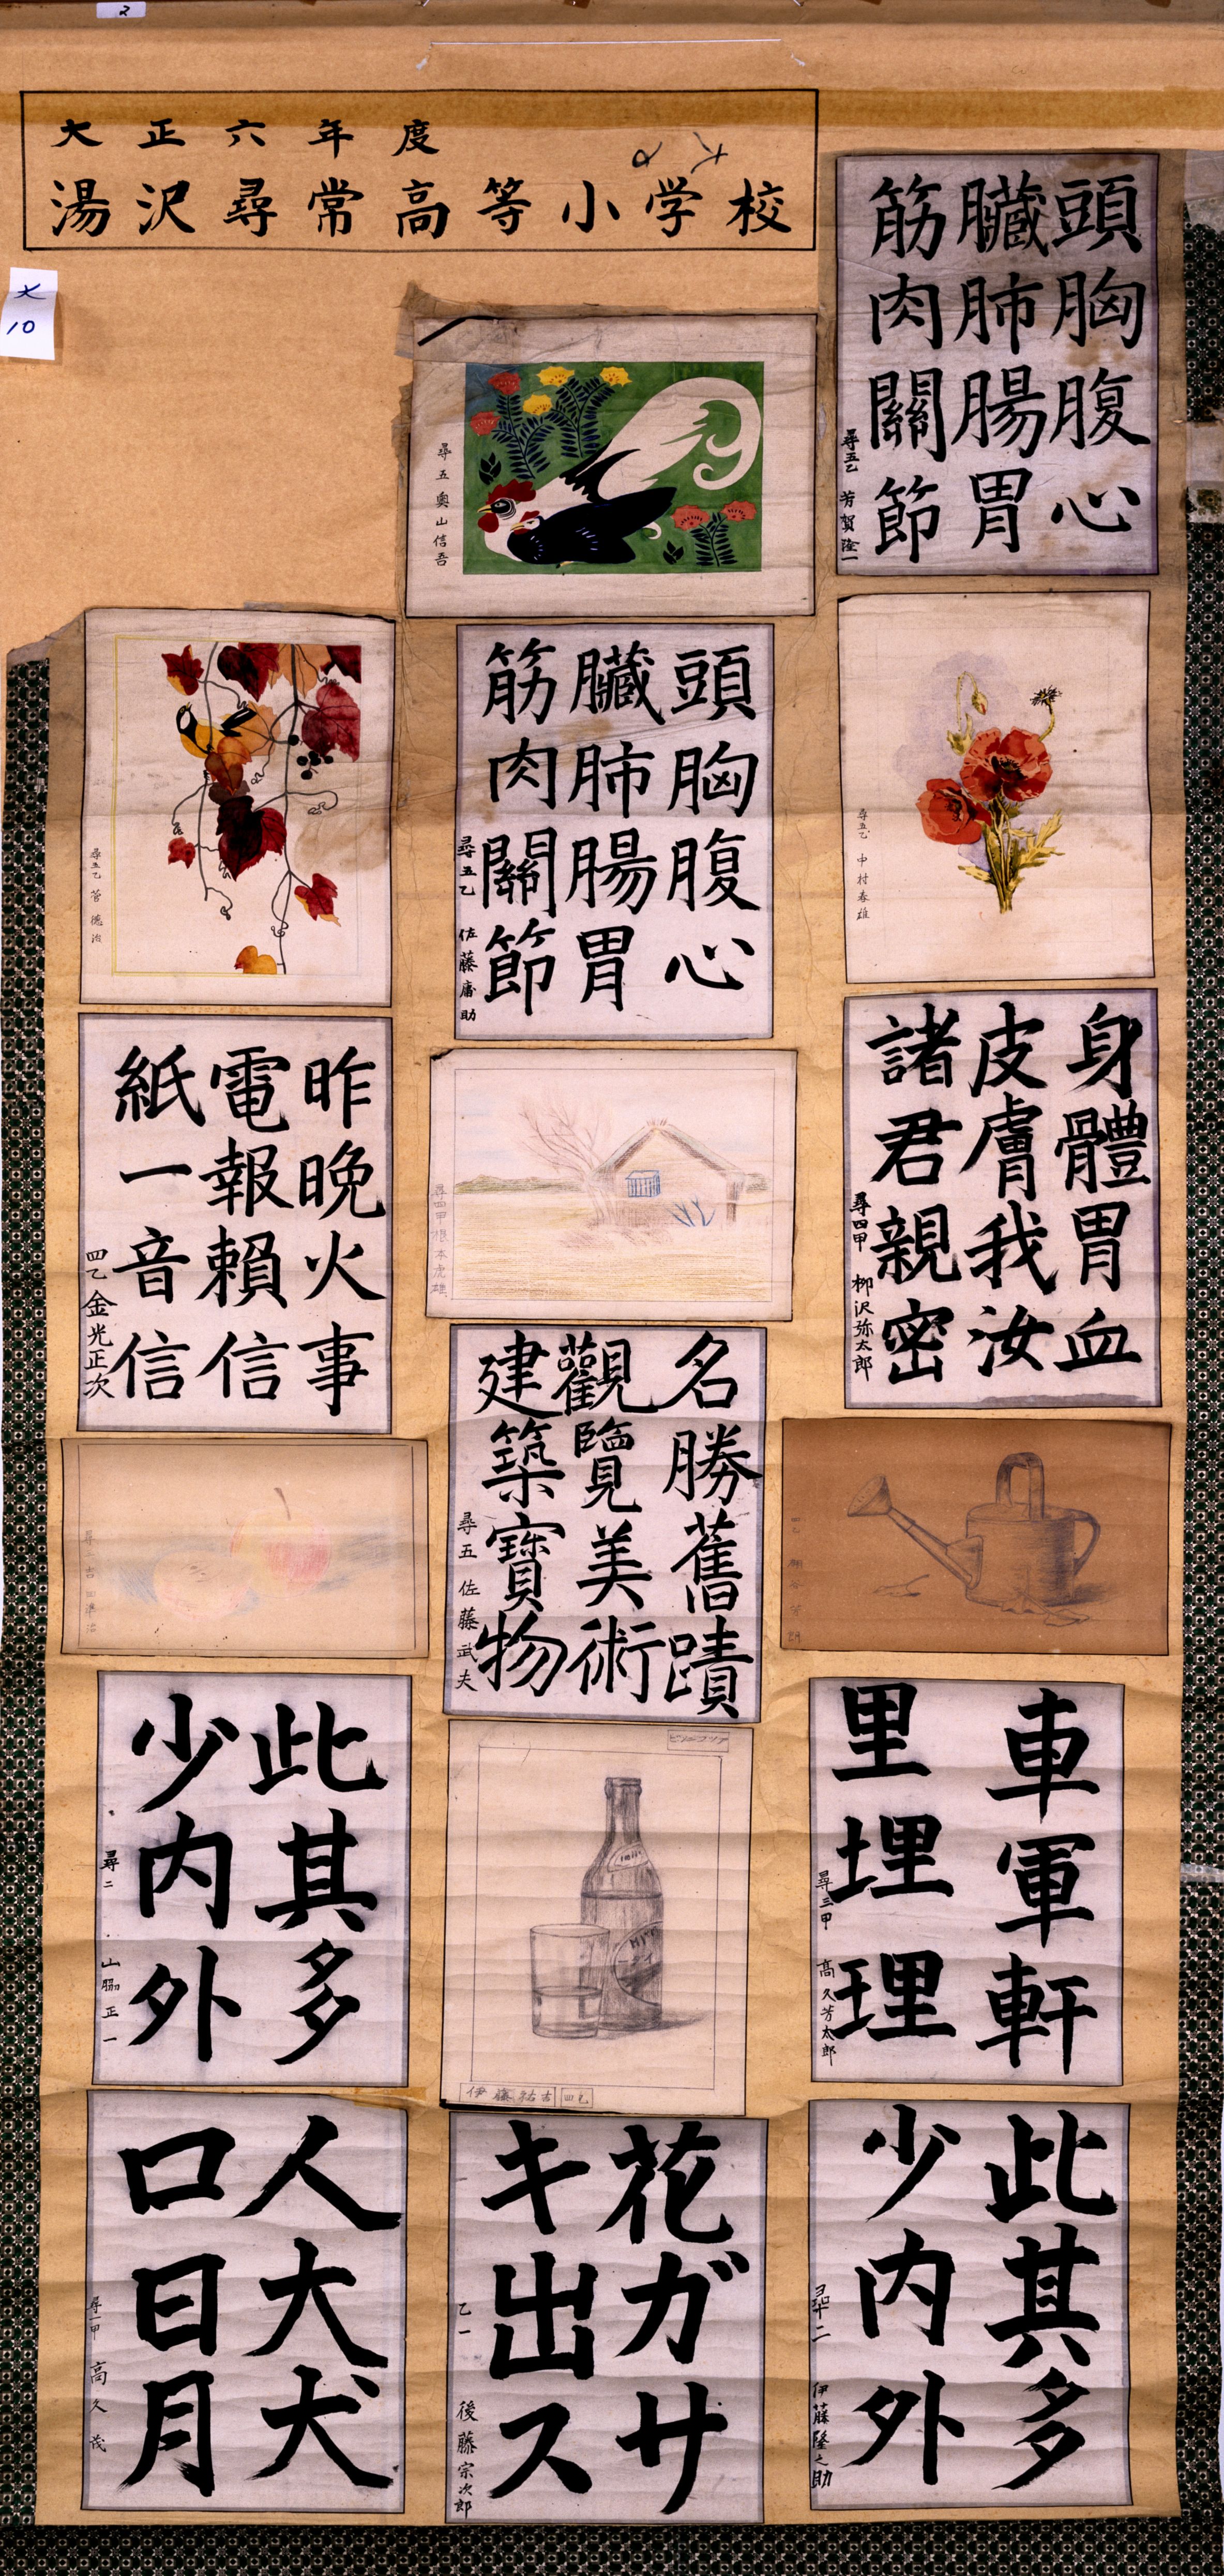 2
大正六年度
湯沢尋常高等小学校
大
10
頭胸腹心
臓肺腸胃
筋肉關節
尋五乙 芳賀隆一
尋五 奥山信吾
尋五乙 中村春雄
頭胸腹心
臓肺腸胃
筋肉關節
尋五乙 佐藤庸助
尋五乙 菅徳治
身體胃血
皮膚我汝
諸君親密
尋四甲 柳沢弥太郎
尋四甲 根本虎雄
昨晩火事
電報頼信
紙一音信
四乙 金光正次
四乙
名勝舊蹟
觀覽美術
建築寶物
尋五 佐藤武夫
吉田準治
車軍軒
里埋理
尋三甲 高久芳太郎
ビントコップ
伊藤祐吉 四乙
此其多
少内外
尋二 山脇正一
此其多
少内外
尋二 伊藤隆之助
花ガサ
キ出ス
乙一 後藤宗次郎
人大犬
口日月
尋一甲 高久茂